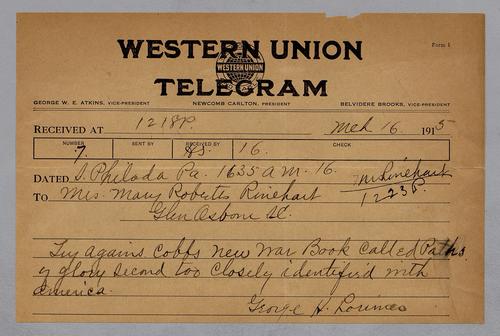 Form 1
WESTERN UNION
WESTERN UNION
TELEGRAM
GEORGE W. E. ATKINS, VICE-PRESIDENT NEWCOMB CARLTON, PRESIDENT BELVIDERE BROOKS, VICE-PRESIDENT
RECEIVED AT 1218P. Mch 16 1915
NUMBER SENT BY RECEIVED BY CHECK
7. 16.
DATED Philada Pa. 1635 am-16.
TO Mrs. Mary Roberts Rinehart
1223P.
Glen Osborne
Cobbs New War Book Called Paths
of glory second too closely identified with
America.
George H. Lorimer